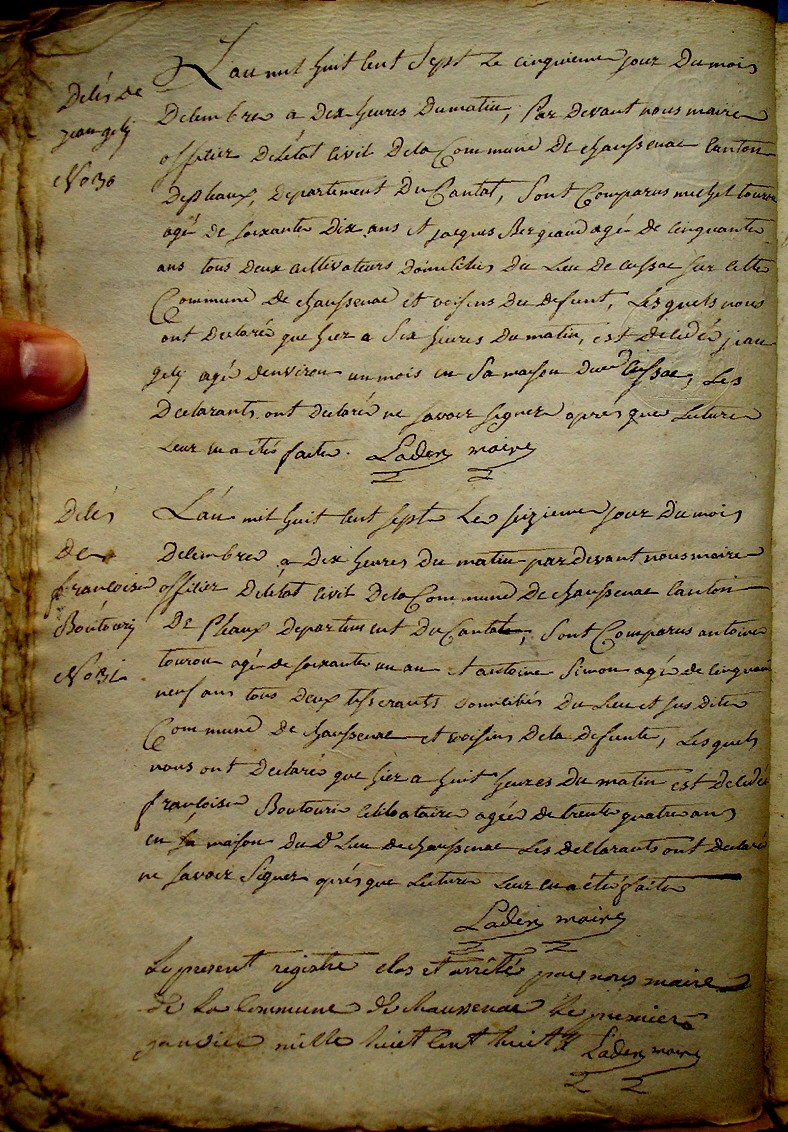 Décès de
jean gely
No 30
L'an mil huit cent Sept Le cinquieme jour Du mois
Decembre a Dix heures Du matin, Par Devant nous maire
officier Del'état Civil De la Commune De chaussenac Canton
De pleaux, Departement Du Cantal, Sont Comparus michel
agé de soixante Dix ans et jacques Bergeaud agé de cinquante
ans tous deux cultivateurs Domiciliés Du Lieu De cussac sur cette
Commune De chaussenac et voisins du defunt, Lesquels nous
ont Declaré que hier a Six heures Du matin, est Decédé jean
gely agé d'environ un mois en Sa maison du Dt Cussac, Les
Declarants ont declaré ne savoir signer aprés que Lecture
Leur en a été faite. Laden maire
Décés
De
françoise
Boutoury
No 31
L'an mil huit cent sept Le seizieme jour Du mois
Decembre a Dix heures Du matin par devant nous maire
officier Del'état Civil De la Commune De chaussenac Canton
De Pleaux Departement Du Cantal, Sont Comparus antoine
tourou agé de soixante un an et antoine Simon agé de cinquante
neuf ans tous deux tisserants Domiciliés Du Lieu et sus dite
Commune De chaussenac et voisins De la Defunte, Lesquels
nous ont Declarés que hier a huit heures Du matin est Decédée
françoise Boutourie celibataire agée de trente quatre ans
en sa maison du Dt Lieu de chaussenac Les declarants ont declaré
ne savoir Signer aprés que Lecture Leur en a été faite
Laden maire
Le present registre clos et arrêté par nous maire
de la Commune de chaussenac Le premier
janvier mille huit cent huit Laden maire